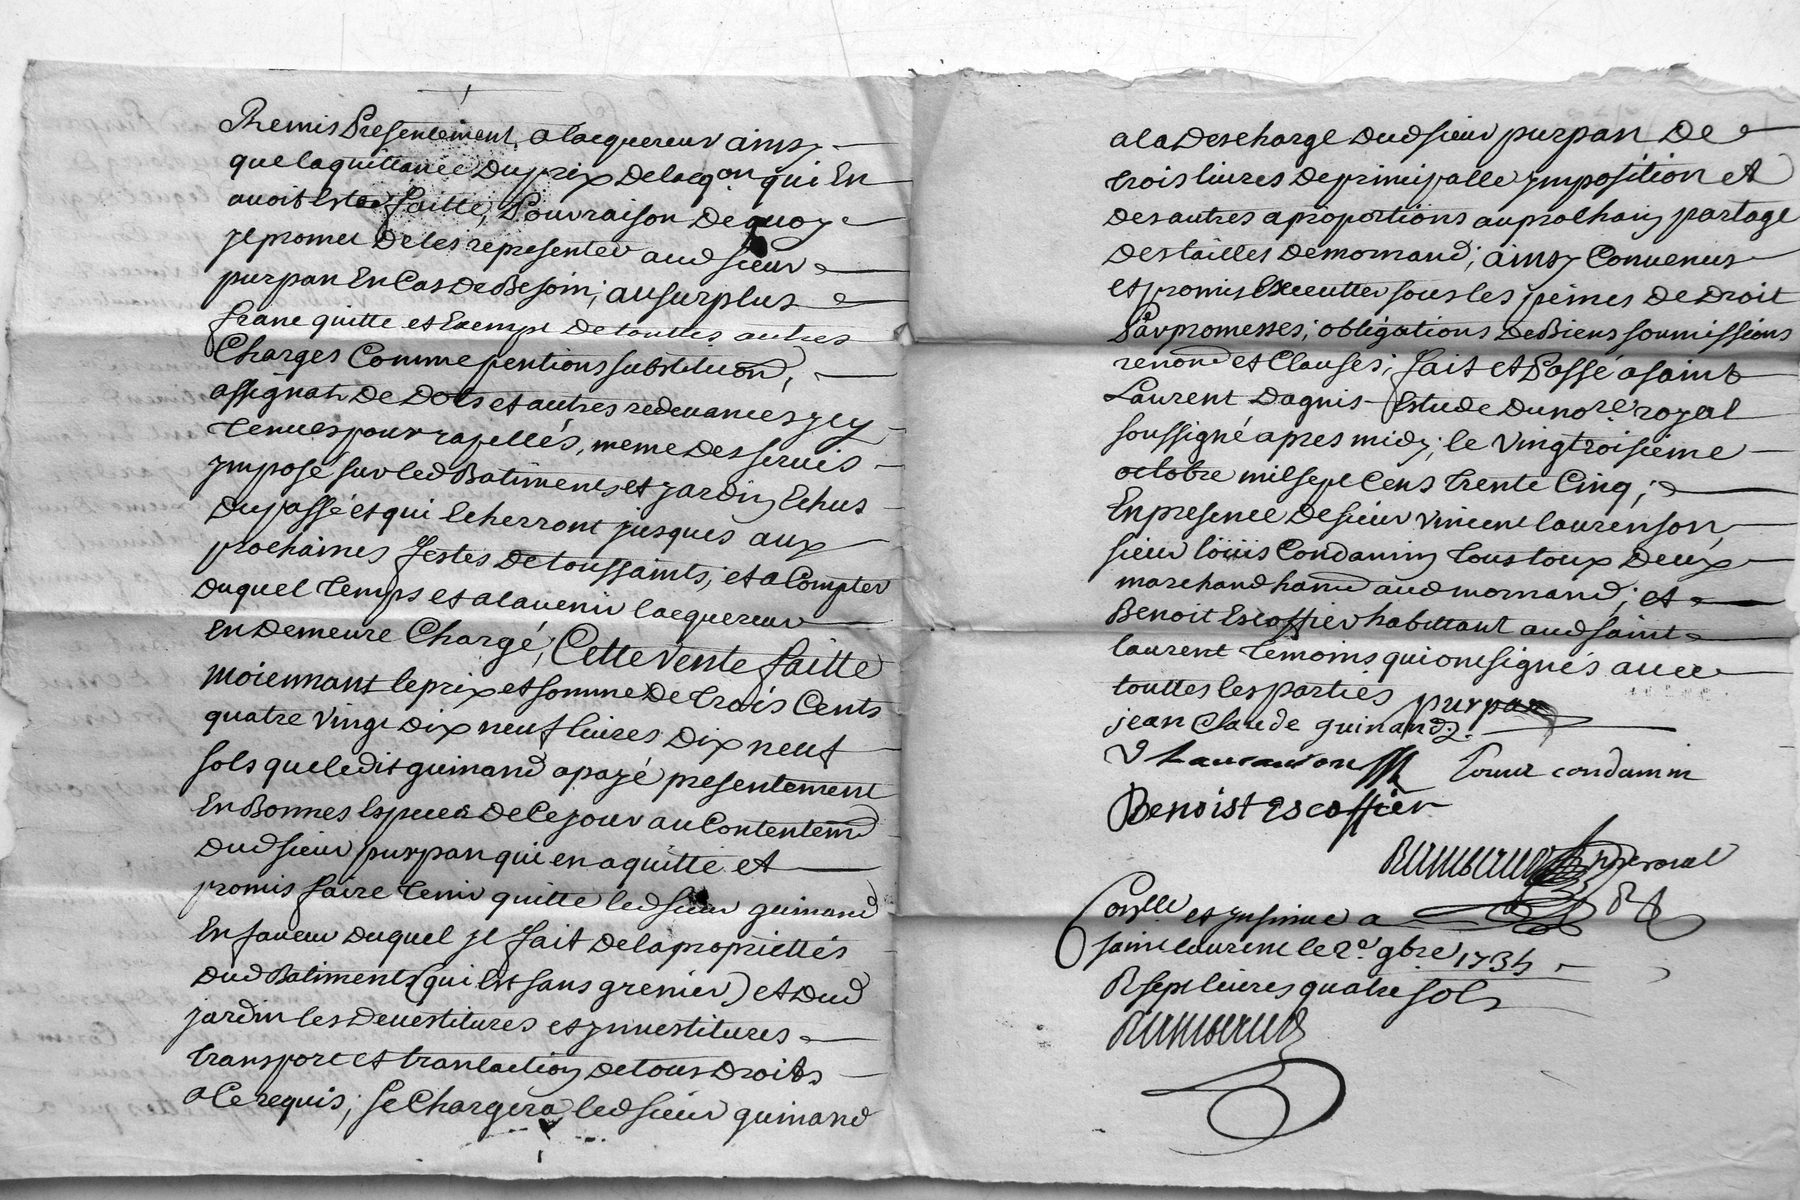 Remis Presentement, a lacquereur ainsy
que la quittance du prix de lacqon qui En
avoit Estee faitte, Pour raison De quoy
je promet De les representer aud sieur
purpan En Cas De Besoin; au surplus
franc quitte et Exempt De touttes autres
Charges Comme pentions substituon,
assignat De Dots et autres redevances jcy
tenues pour rapellés, meme Des servis
jmposé sur led Batiments et jardin Echus
Du passé et qui Echerront jusques aux
prochaines festes De toussaints, et a Compter
Duquel Temps et a lavenir lacquereur
En Demeure Chargé; Cette vente faitte
moiennant le prix et somme De trois Cents
quatre vingt Dix neuf livres Dix neuf
sols que ledit guinand a payé presentement
En Bonnes Especes De Ce jour au Contentemt
Dud sieur purpan qui en a quitté et
promis faire tenir quitte led sieur guinand
En faveur Duquel jl fait De la propriettés
Dud Batiments (qui Est sans grenier) et Dud
jardin les Devestitures et jnvestitures
transport et translation De tous Droits
a Ce requis; se Chargera, led sieur guinand
a la Descharge Dud sieur purpan De
trois livres De principalle jmposition et
Des autres a proportions au prochain partage
Des tailles De mornand; ainsy Convenus
et promis Executter sous les peines De Droit
Par promesses; obligations De Biens soumissions
renond et Clauses; fait et Passé a saint
Laurent Dagnis Estude Du nore royal
soussigné apres midy; le vingtroisieme
octobre mil sept Cens trente Cinq;
En presence De sieur vincent laurenson,
sieur loüis Condamin tous toux Deux
marchand hand aud mornand; et
Benoit Escoffier habittant aud saint
laurent temoins qui ont signés avec
touttes les parties purpan
jean Claude guinand
V Laurenson Louis condamin
Benoist Escoffier
nore royal
Conlle et jnsinué a
saint laurent le 2e 9bre 1735
R sept livres quatre sols